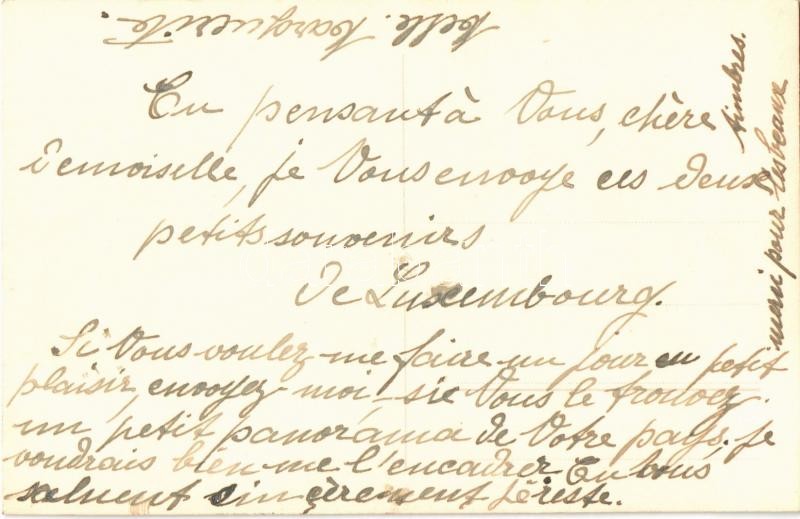 Melle. Marguerite.
En pensant à Vous, chère
Demoiselle, je Vous envoye ces deux
petits souvenirs
de Luxembourg.
Si Vous voulez me faire un jour un petit
plaisir, envoyez-moi si Vous le trouvez
un petit panorama de Votre pays, je
voudrais bien me l'encadrer. En Vous
saluent sincèrement je reste.
merci pour les beaux
timbres.